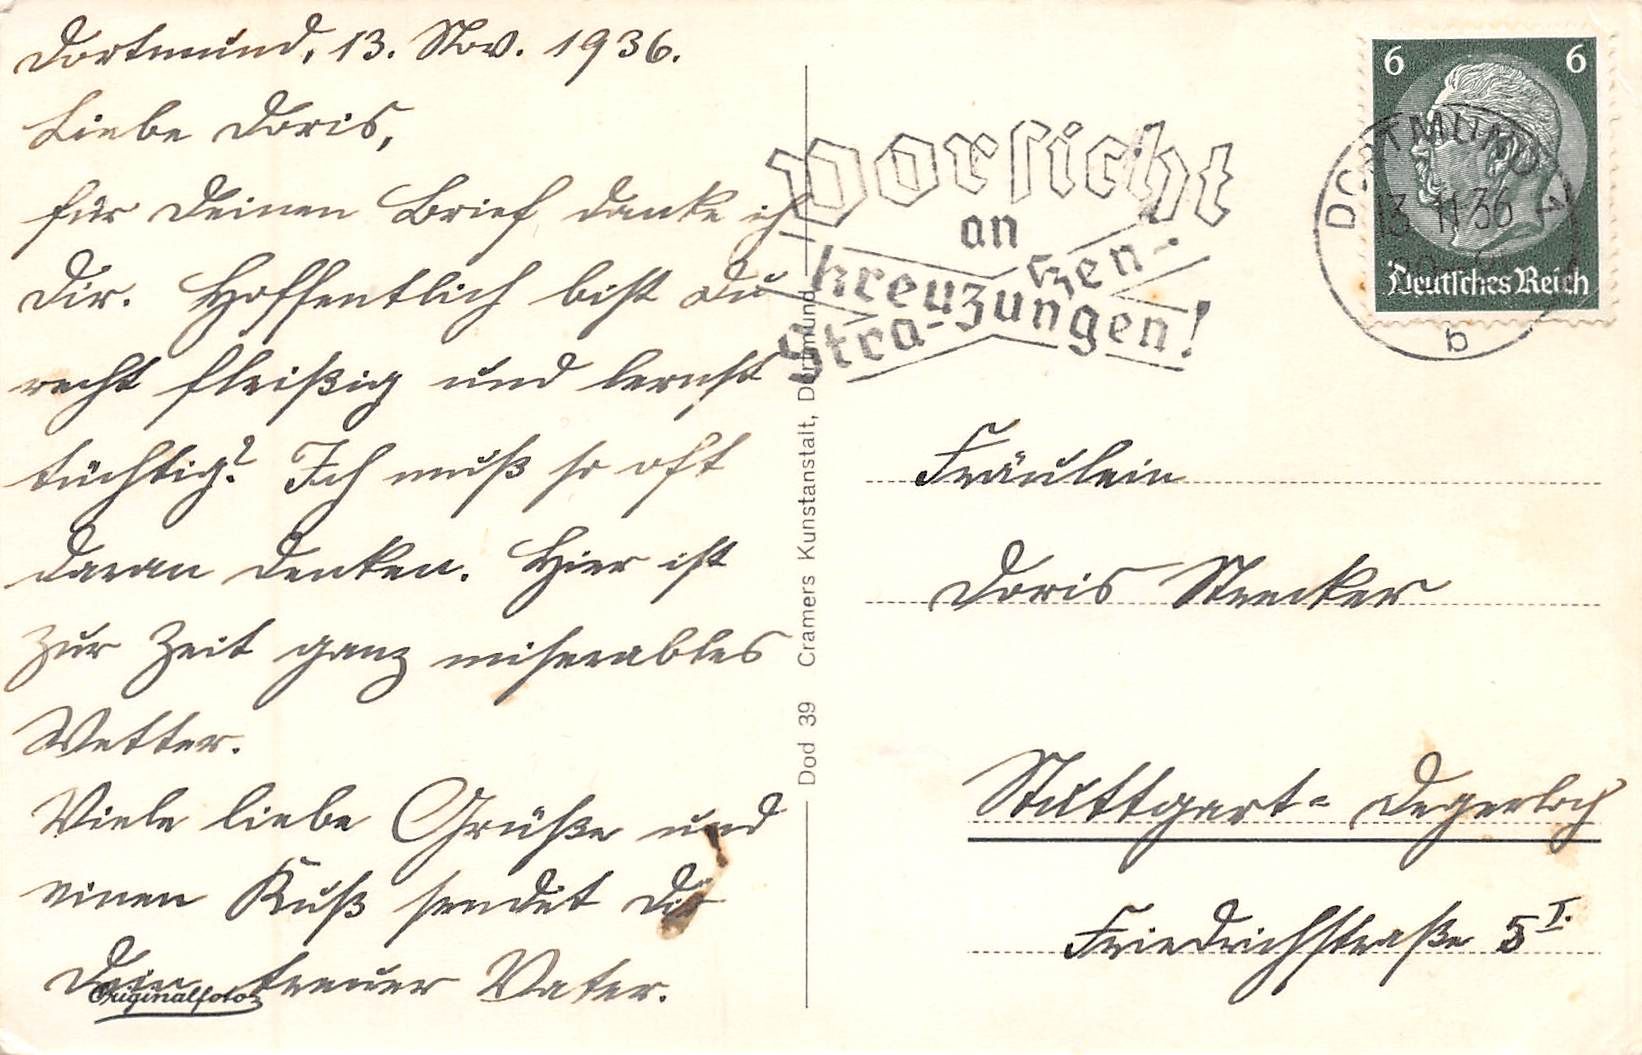 Dortmund, 13. Nov. 1936.
Liebe Doris,
für Deinen Brief danke ich
Dir. Hoffentlich bist Du
recht fleißig und lernst
tüchtig? Ich muß so oft
daran denken. Hier ist
zur Zeit ganz miserables
Wetter.
Viele liebe Grüße und
einen Kuß sendet Dir
Dein treuer Vater.
Originalfoto
Dod 39 Cramers Kunstanstalt, Dortmund
Vorsicht
an
Straßen-
kreuzungen!
6 6
Deutsches Reich
DORTMUND
13.11.36
b
Fräulein
Doris Strecker
Stuttgart-Degerloch
Friedrichstraße 5 I.